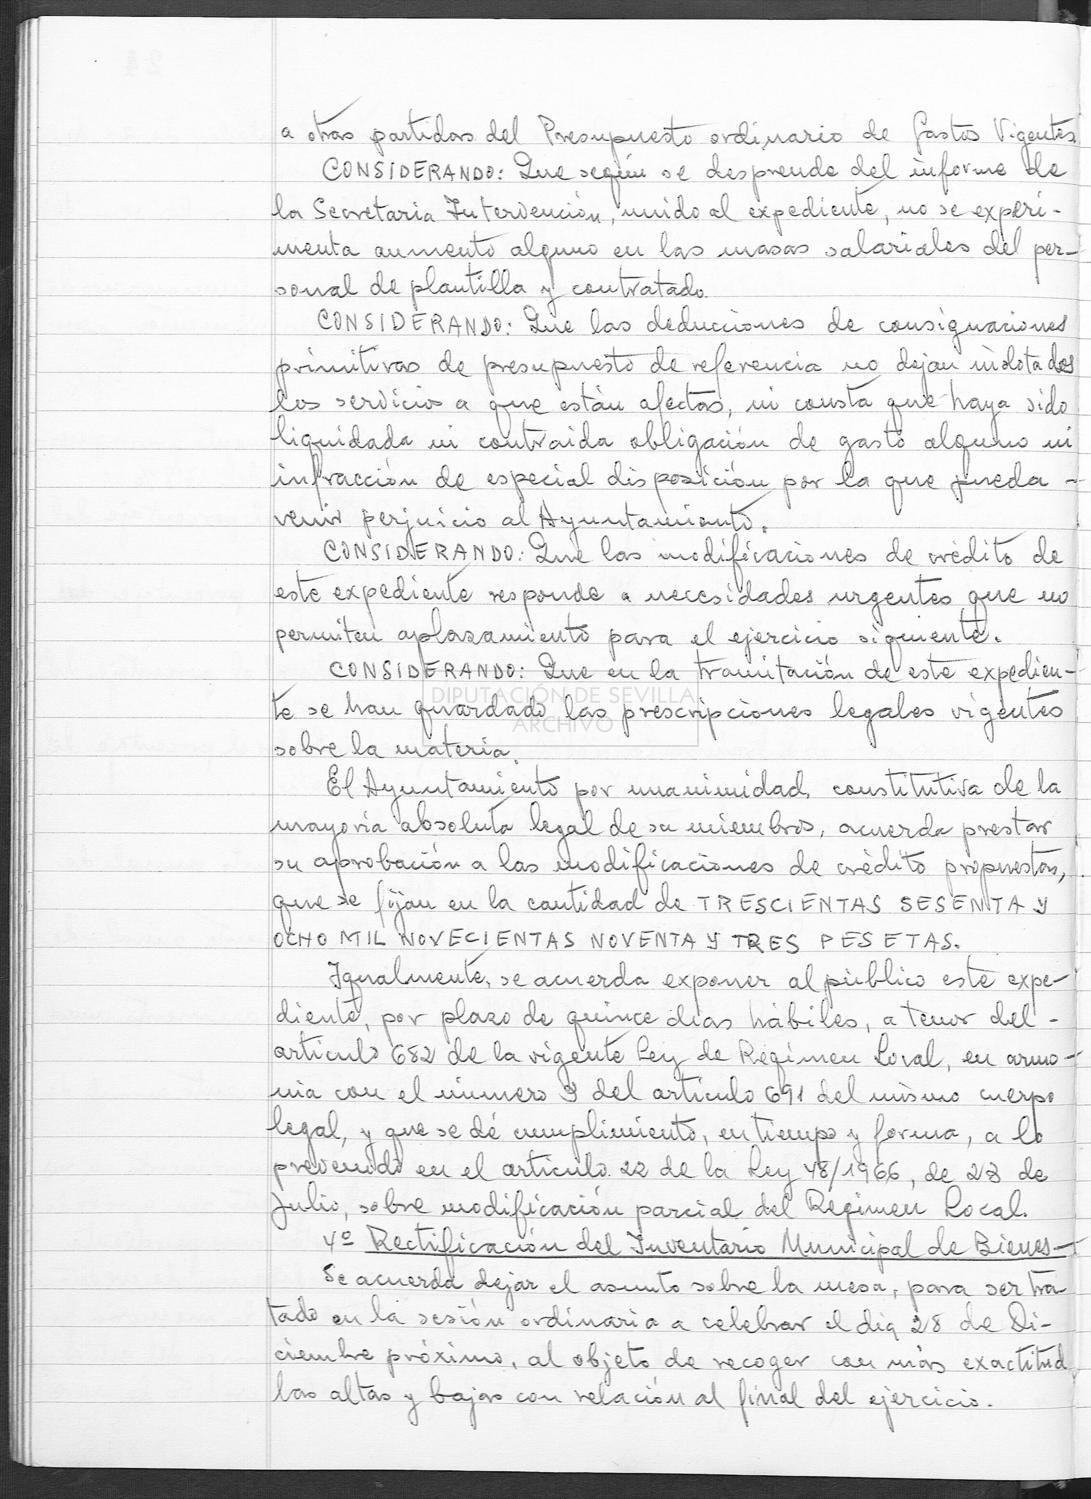 a otras partidas del Presupuesto ordinario de Gastos Vigentes
CONSIDERANDO: Que según se desprende del informe de
la Secretaria Intervención, unido al expediente, no se experi-
menta aumento alguno en las masas salariales del per-
sonal de plantilla y contratado.
CONSIDERANDO: Que las deducciones de consignaciones
primitivas de presupuesto de referencia no dejan indotados
los servicios a que están afectas, ni consta que haya sido
liquidada ni contraida obligación de gasto alguno ni
infracción de especial disposición por la que pueda -
venir perjuicio al Ayuntamiento.
CONSIDERANDO: Que las modificaciones de crédito de
este expediente responde a necesidades urgentes que no
permiten aplazamiento para el ejercicio siguiente.
CONSIDERANDO: Que en la tramitación de este expedien-
DIPUTACIÓN DE SEVILLA
te se han guardado las prescripciones legales vigentes
ARCHIVO
sobre la materia.
El Ayuntamiento por unanimidad, constitutiva de la
mayoria absoluta legal de su miembros, acuerda prestar
su aprobación a las modificaciones de crédito propuestas,
que se fijan en la cantidad de TRESCIENTAS SESENTA Y
OCHO MIL NOVECIENTAS NOVENTA Y TRES PESETAS.
Igualmente, se acuerda exponer al público este expe-
diente, por plazo de quince dias hábiles, a tenor del -
articulo 682 de la vigente Ley de Regimen Local, en armo-
nia con el número 3 del articulo 691 del mismo cuerpo
legal, y que se dé cumplimiento, en tiempo y forma, a lo
prevenido en el articulo 22 de la Ley 48/1966, de 23 de
Julio, sobre modificación parcial del Regimen Local.
4º Rectificación del Inventario Municipal de Bienes-
Se acuerda dejar el asunto sobre la mesa, para ser tra-
tado en la sesión ordinaria a celebrar el dia 28 de Di-
ciembre próximo, al objeto de recoger con más exactitud
las altas y bajas con relación al final del ejercicio.